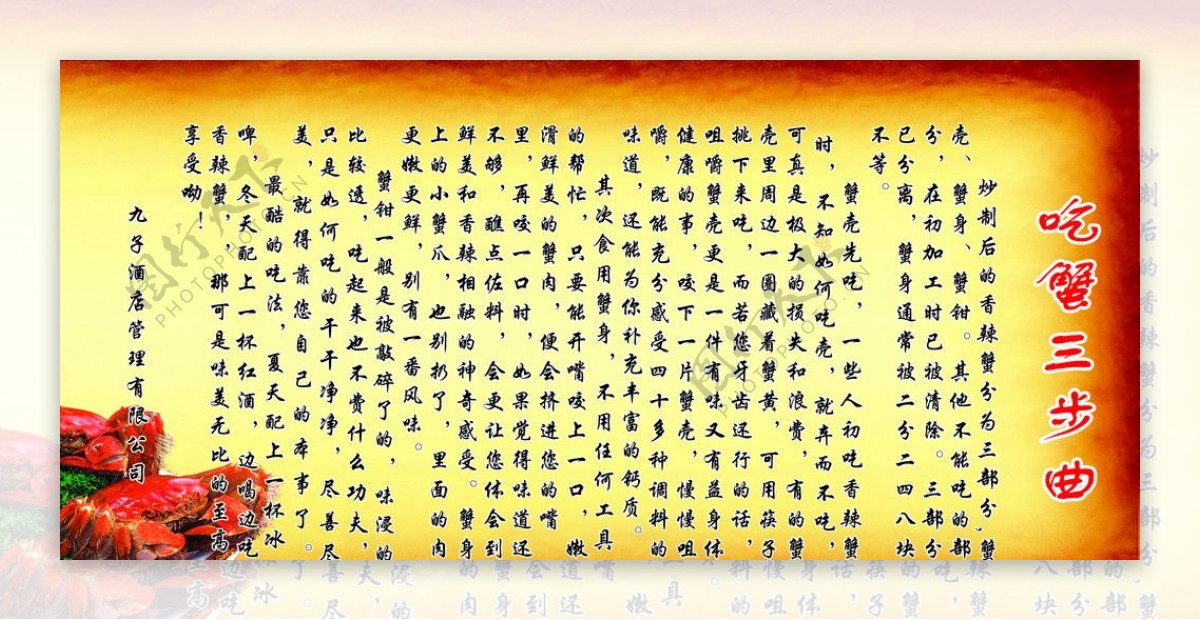 吃蟹三步曲
炒制后的香辣蟹分为三部分，蟹
壳、蟹身、蟹钳。其他不能吃的部
分，在初加工时已被清除。三部分
已分离，蟹身通常被二分二四八块
不等。
蟹壳先吃，一些人初吃香辣蟹
时，不知如何吃壳，就弃而不吃，
可真是极大的损失和浪费，有的蟹
壳里周边一圈藏着蟹黄，可用筷子
挑下来吃，而若您牙齿还行的话，
咀嚼蟹壳更是一件有味又有益身体
健康的事，咬下一片蟹壳，慢慢咀
嚼，既能充分感受四十多种调料的
味道，还能为你补充丰富的钙质。
其次食用蟹身，不用任何工具
的帮忙，只要能开嘴咬上一口，嫩
滑鲜美的蟹肉，便会挤进您的嘴
里，再咬一口时，如果觉得味道还
不够，醮点佐料，会更让您体会到
鲜美和香辣相融的神奇感受。蟹身
上的小蟹爪，也别扔了，里面的肉
更嫩更鲜，别有一番风味。
蟹钳一般是被敲碎了的，味浸的
比较透，吃起来也不费什么功夫，
只是如何吃的干干净净，尽善尽
美，就得靠您自己的本事了。
最酷的吃法，夏天配上一杯冰
啤，冬天配上一杯红酒，边喝边吃
香辣蟹，那可是味美无比的至高
享受呦！
九子酒店管理有限公司